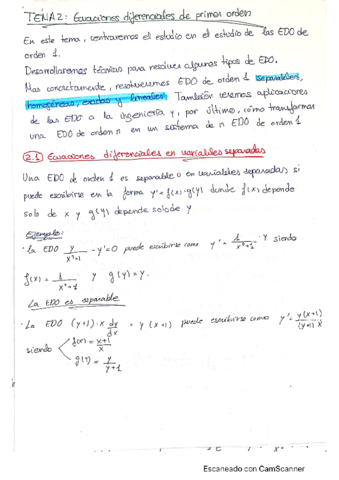 TEMA 2: Ecuaciones diferenciales de primer orden
En este tema, centraremos el estudio en el estudio de las EDO de
orden 1.
Desarrollaremos técnicas para resolver algunos tipos de EDO.
Mas concretamente, resolveremos EDO de orden 1 separables,
homogéneas, exactas y lineales. También veremos aplicaciones
de las EDO a la ingeniería y, por último, cómo transformar
una EDO de orden n en un sistema de n EDO de orden 1
2.1 Ecuaciones diferenciales en variables separadas
Una EDO de orden 1 es separable o en variables separadas si
puede escribirse en la forma y'=f(x)·g(y) donde f(x) depende
solo de x y g(y) depende solo de y
Ejemplo:
· La EDO y/(x²+1) - y'=0 puede escribirse como y' = 1/(x²+1) · y siendo
f(x) = 1/(x²+1) y g(y)=y.
La EDO es separable
· La EDO (y+1)·x dy/dx = y(x+1) puede escribirse como y' = y(x+1)/(y+1)x
siendo f(x) = (x+1)/x
g(y) = y/(y+1)
Escaneado con CamScanner